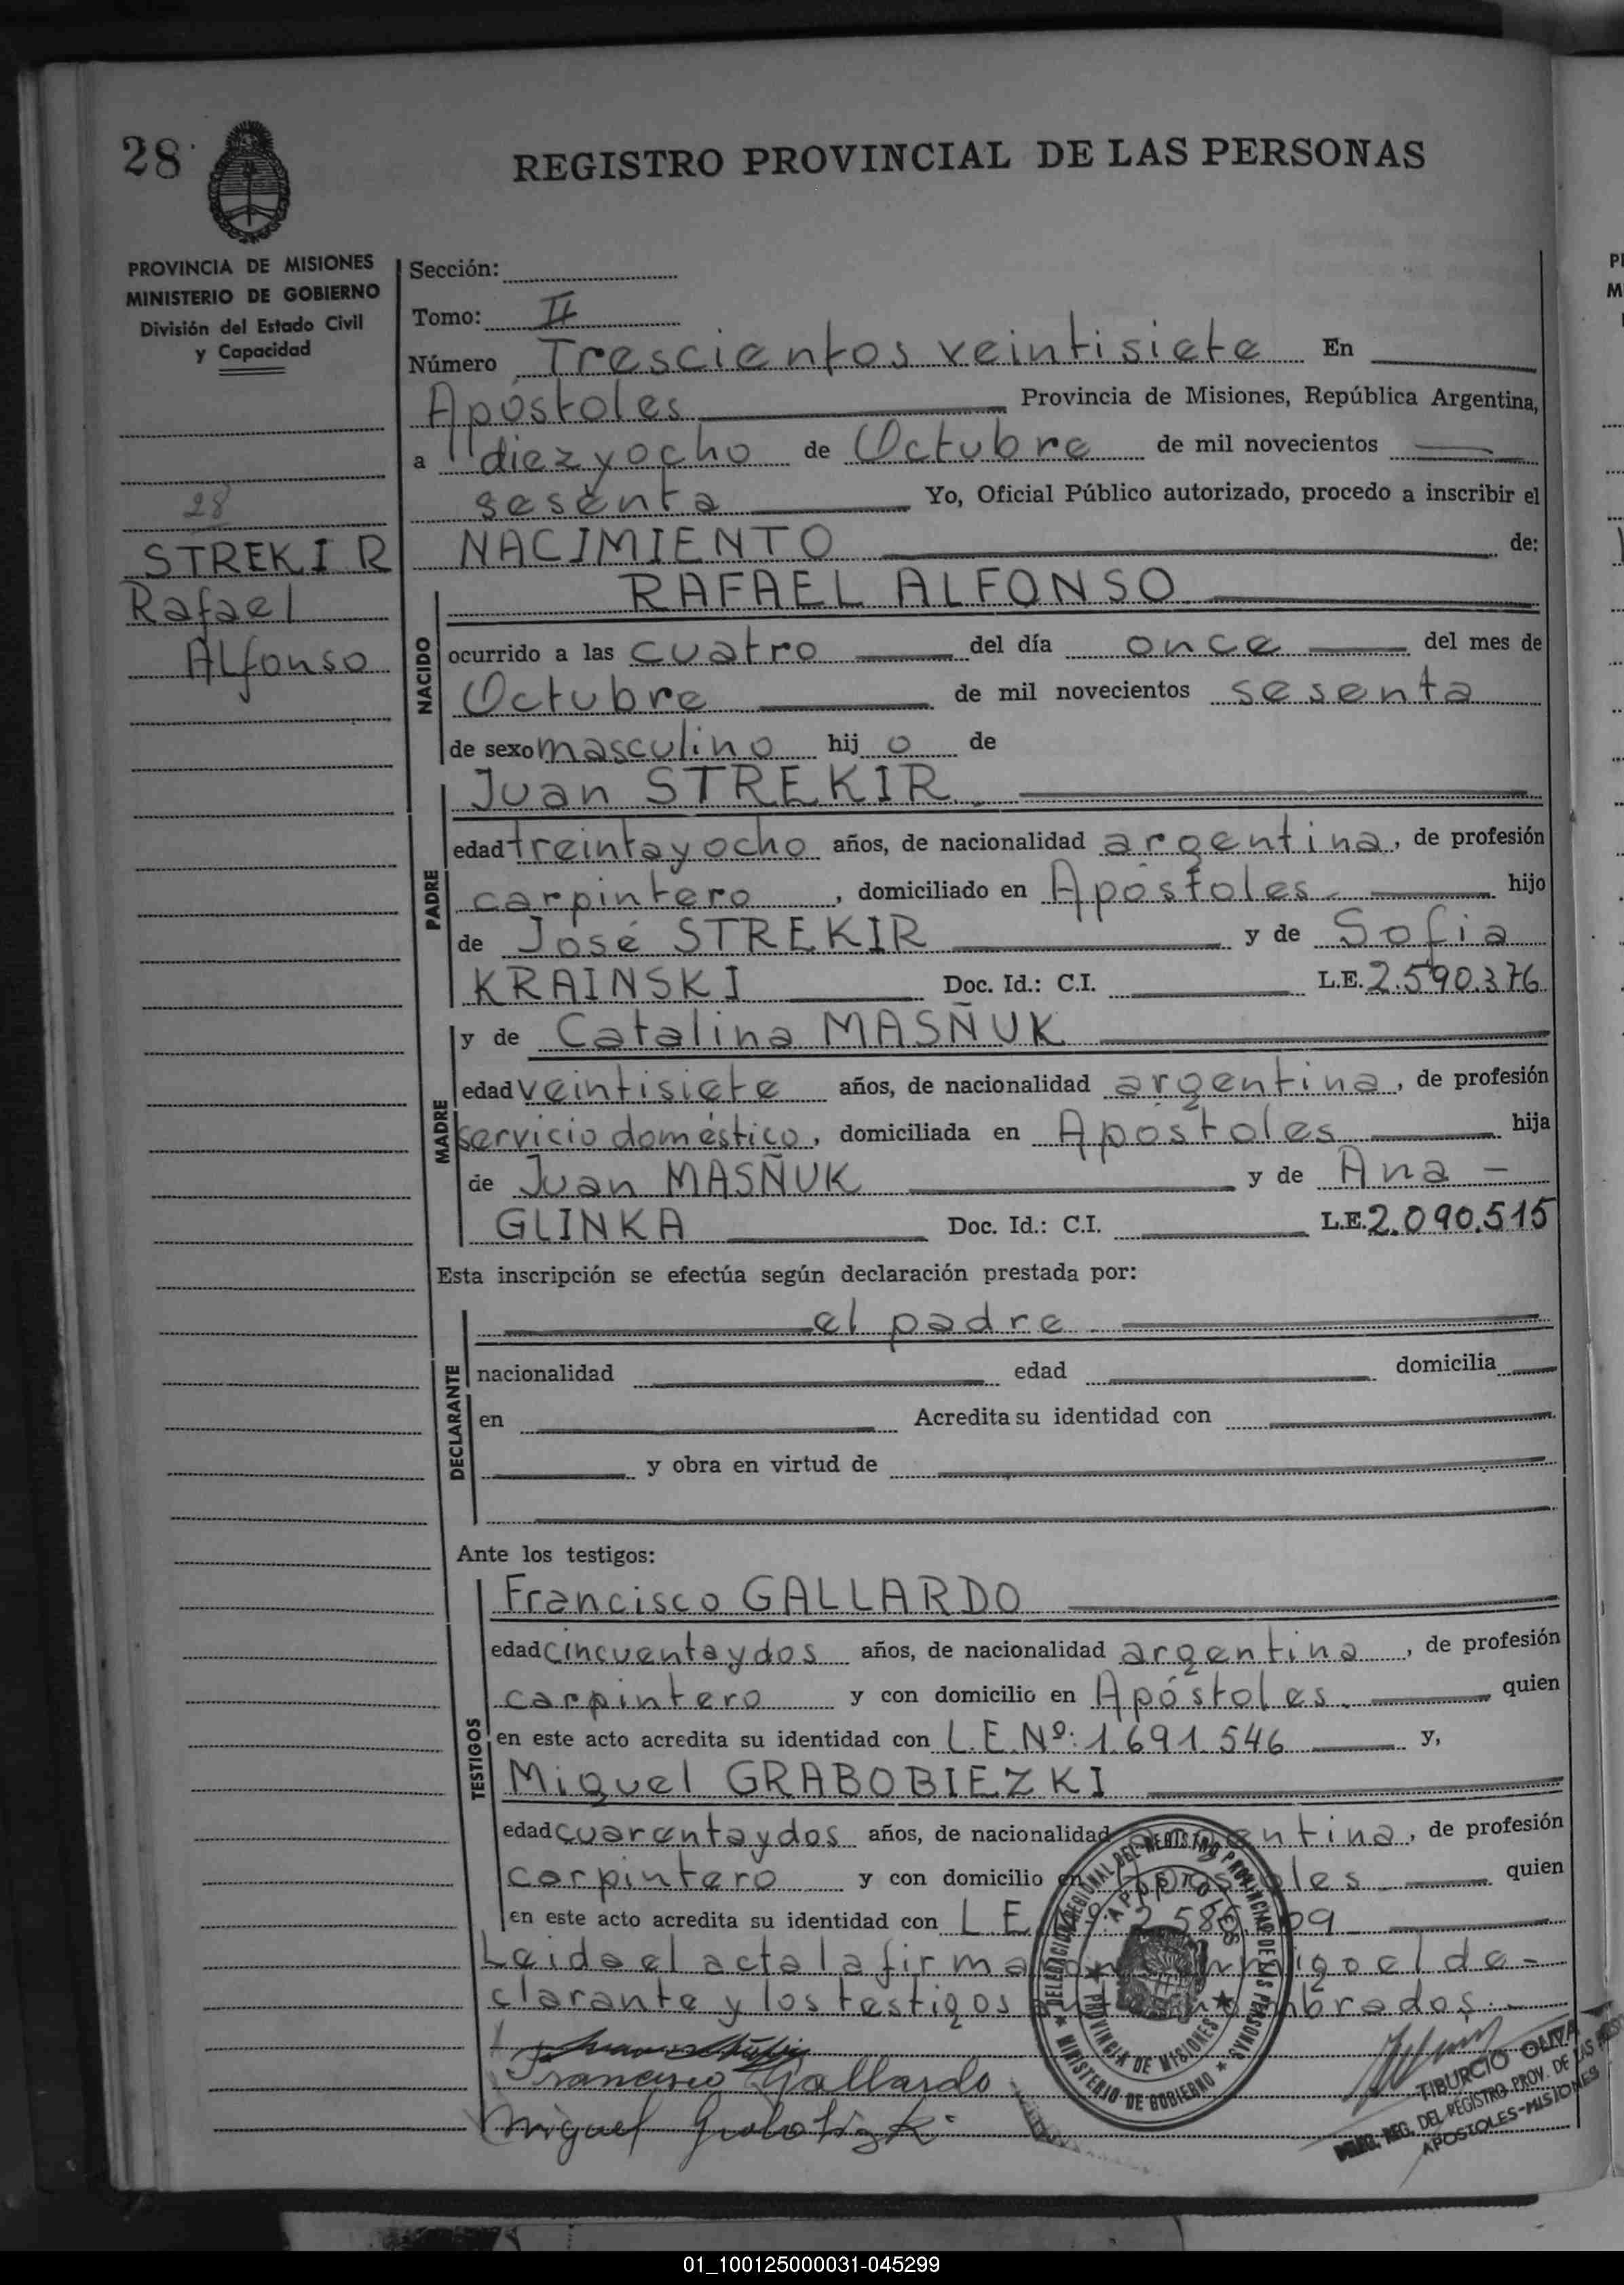 28
REGISTRO PROVINCIAL DE LAS PERSONAS
PROVINCIA DE MISIONES
MINISTERIO DE GOBIERNO
División del Estado Civil
y Capacidad
28
STREKIR
Rafael
Alfonso
Sección:
Tomo: II
Número Trescientos veintisiete En
Apóstoles Provincia de Misiones, República Argentina,
a diez y ocho de Octubre de mil novecientos
sesenta Yo, Oficial Público autorizado, procedo a inscribir el
NACIMIENTO de:
NACIDO
RAFAEL ALFONSO
ocurrido a las cuatro del día once del mes de
Octubre de mil novecientos sesenta
de sexo masculino hijo de
PADRE
Juan STREKIR
edad treinta y ocho años, de nacionalidad argentina, de profesión
carpintero, domiciliado en Apóstoles hijo
de José STREKIR y de Sofia
KRAINSKI Doc. Id.: C.I. L.E. 2.590.376
MADRE
y de Catalina MASÑUK
edad veintisiete años, de nacionalidad argentina, de profesión
servicio doméstico, domiciliada en Apóstoles hija
de Juan MASÑUK y de Ana
GLINKA Doc. Id.: C.I. L.E. 2.090.515
Esta inscripción se efectúa según declaración prestada por:
DECLARANTE
el padre
nacionalidad edad domicilia
en Acredita su identidad con
y obra en virtud de
Ante los testigos:
TESTIGOS
Francisco GALLARDO
edad cincuenta y dos años, de nacionalidad argentina, de profesión
carpintero y con domicilio en Apóstoles. quien
en este acto acredita su identidad con L.E.Nº: 1.691.546 y,
Miguel GRABOBIEZKI
edad cuarenta y dos años, de nacionalidad argentina, de profesión
carpintero y con domicilio en Apóstoles quien
en este acto acredita su identidad con L.E.
Leida el acta la firman conmigo el de-
clarante y los testigos nombrados.-
Francisco Gallardo
Miguel
DELEGACION REGIONAL DEL REGISTRO PROVINCIAL DE LAS PERSONAS
MINISTERIO DE GOBIERNO
APOSTOLES
PROVINCIA DE MISIONES
TIBURCIO OLIVA
DELEG. REG. DEL REGISTRO PROV. DE LAS
APOSTOLES-MISIONES
01_100125000031-045299